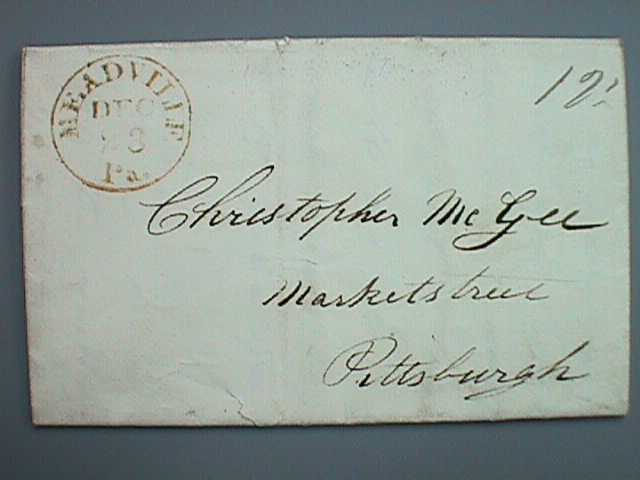 MEADVILLE
DEC
23
Pa.
Christopher McGee
Marketstreet
Pittsburgh